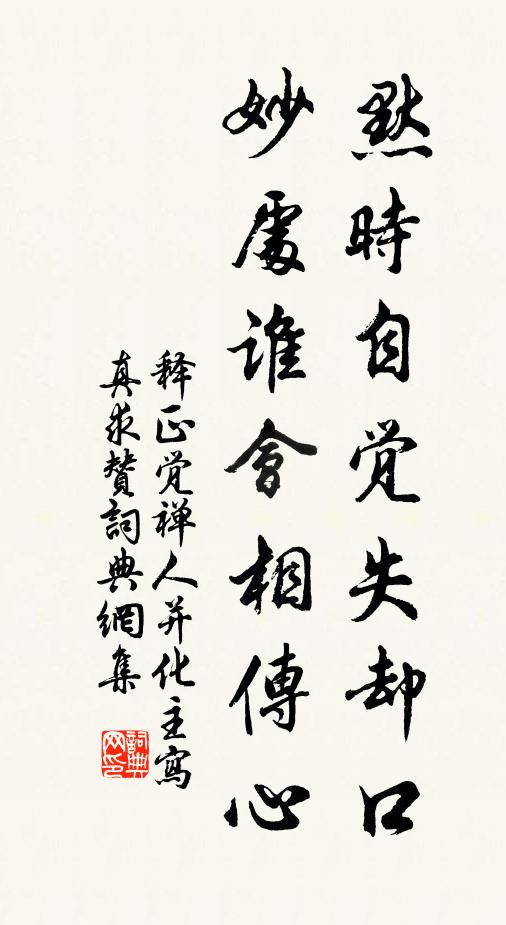 黙時自觉失却口
妙處誰會相傳心
释正觉禅人并化主寫
真求贊詞典網集
詞典
网印